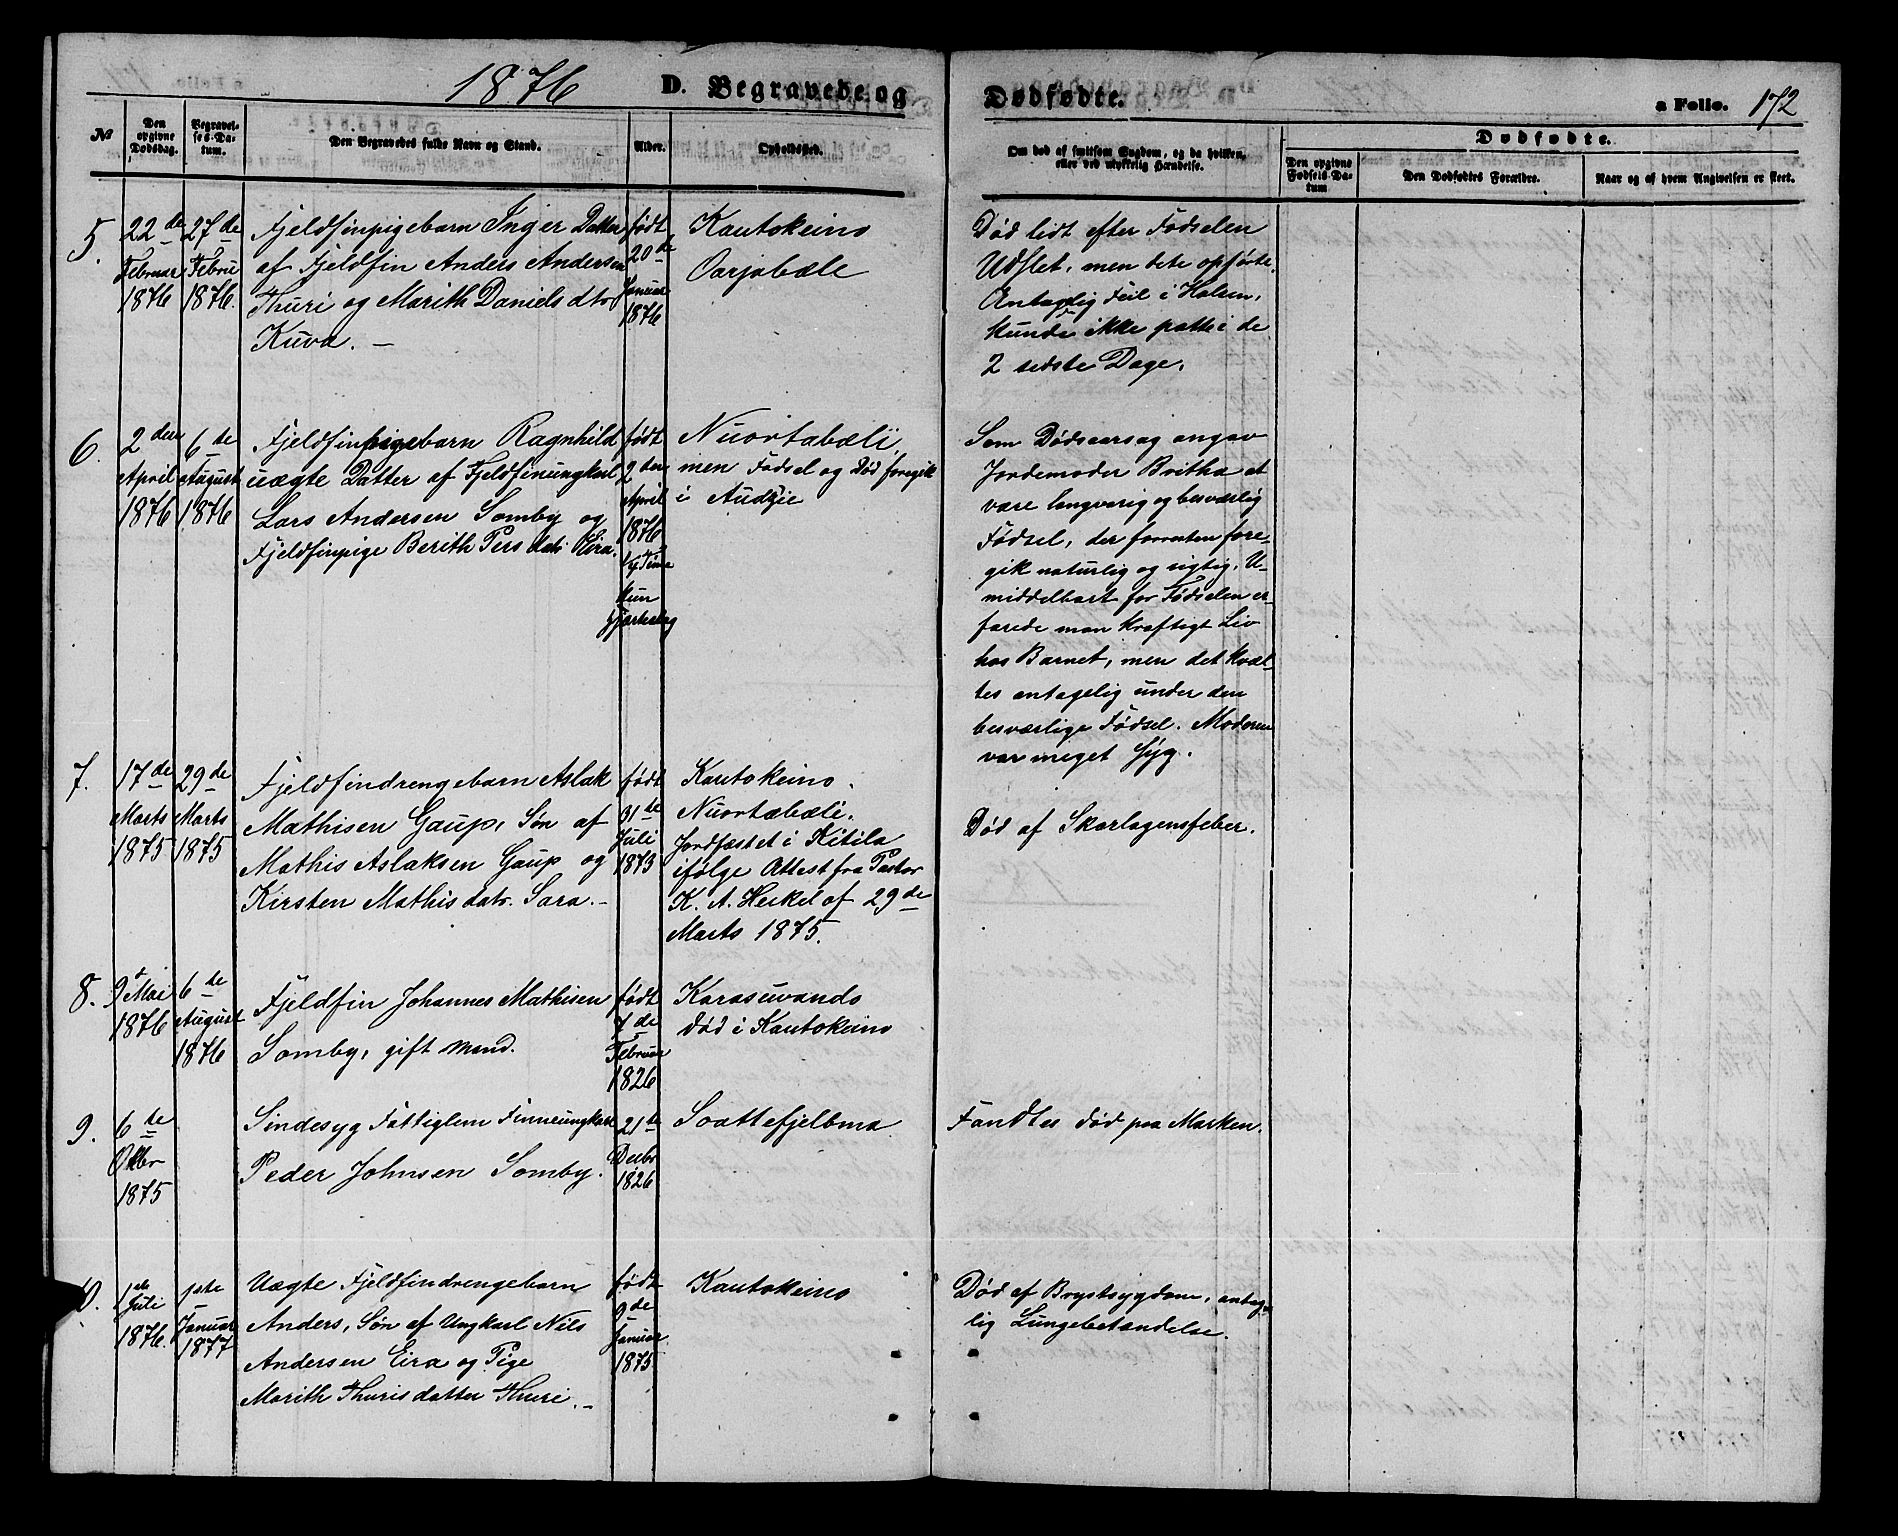 1876 D. Begravede og Dødfødte. a Folio. 172
No
Den opgivne Dødsdag.
Begravelses-Datum.
Den Begravedes fulde Navn og Stand.
Alder.
Opholdssted.
Om død af smitsom Sygdom, og da hvilken, eller ved ulykkelig Hændelse.
Dødfødte.
Den opgivne Fødsels-Datum
Den Dødfødtes Forældre.
Naar og af hvem Angivelsen er skeet.
5.
22de
Februar
1876
27de
Febru
1876.
Fjeldfinpigebarn Inger Datter
af Fjeldfin Anders Andersen
Thuri og Marith Daniels dtr
Kuva. –
født
20de
Januar
1876
Kautokeino
Oarjabæle
Død lidt efter Fødselen
Udslet, men dete opførte.
Antagelig Feil i Halsen,
kunde ikke patte i de
2 sidste Dage.
6.
2den
April
1876
6de
August
1876
Fjeldfinpigebarn Ragnhild
uægte Datter af Fjeldfinungkarl
Lars Andersen Somby og
Fjeldfinpige Berith Pers datr Eira.
født
2den
April
1876
Nuortabæli,
men Fødsel og Død foregik
i Audsie
Som Dødsaarsag angav
Jordemoder Britha at
være langvarig og besværlig
Fødsel, der forresten fore-
gik naturlig og rigtig. U-
middelbart for Fødselen er-
farede man kraftigt Liv
hos Barnet, men det kvæl-
tes antagelig under den
besværlige Fødsel. Moderen
var meget syg.
7.
17de
Marts
1875
29de
Marts
1875
Fjeldfindrengebarn Aslak
Mathisen Gaup, Søn af
Mathis Aslaksen Gaup og
Kirsten Mathis datr. Sara. –
født
31te
Juli
1873
Kautokeino.
Nuortabæli.
Jordfæstet i Kitila
ifølge Attest fra Pastor
K. A. Heikel af 29de
Marts 1875.
Død af Skarlagensfeber.
8.
9de Mai
1876
6de
August
1876
Fjeldfin Johannes Mathisen
Somby, gift Mand.
født
7de
Februar
1826
Karasuvando
død i Kautokeino
9.
6de
Oktbr
1875
Sindesyg Fattiglem Finneungkarl
Peder Johnsen Somby.
21de
Decbr
1826
Soattefjelbma
Fandtes død paa Marken.
10.
1ste
Juli
1876.
1ste
Januar
1877
Uægte Fjeldfindrengebarn
Anders, Søn af Ungkarl Nils
Andersen Eira og Pige
Marith Thuris datter Thuri. –
født
9de
Januar
1875
Kautokeino
Død af Brystsygdom, antage-
lig Lungebetændelse.